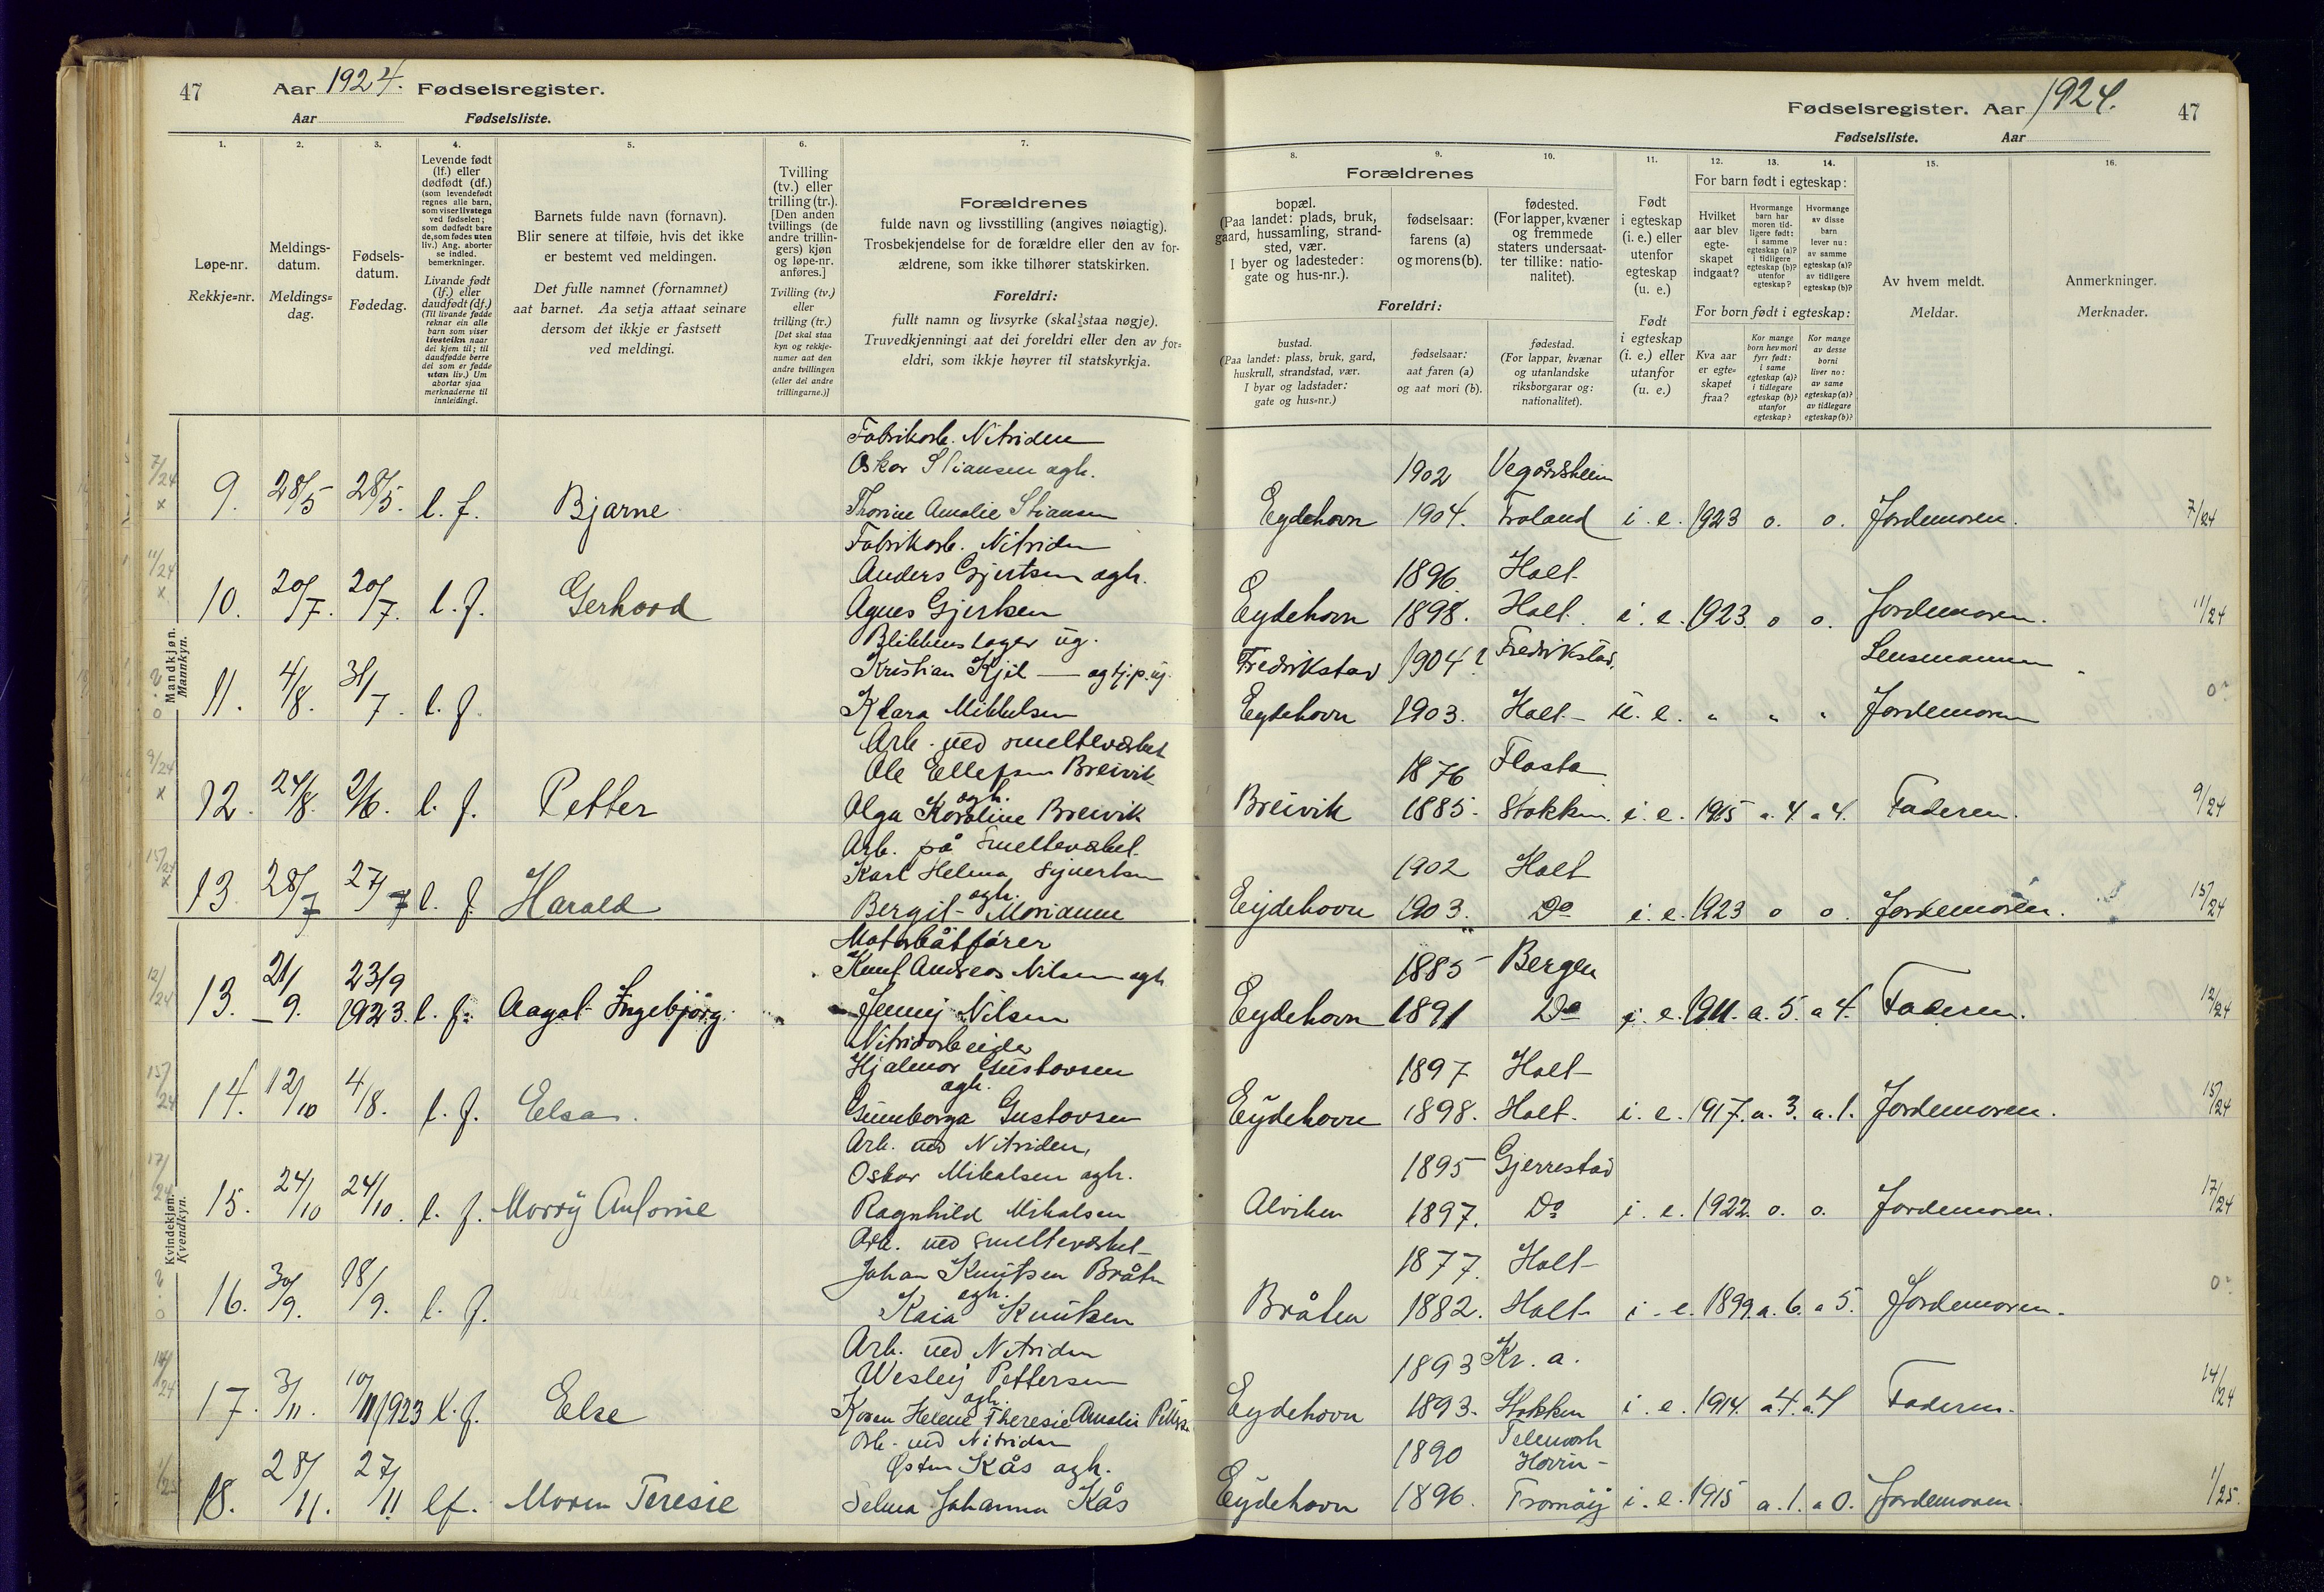 47 Aar 1924. Fødselsregister.
Aar Fødselsliste.
1. 2. 3. 4. 5. 6. 7.
Løpe-nr.
Rekkje=nr.
Meldings-
datum.
Meldings=
dag.
Fødsels-
datum.
Fødedag.
Levende født
(lf.) eller
dødfødt (df.)
(som levendefødt
regnes alle barn,
som viser livstegn
ved fødselen;
som dødfødt bare
de, som fødes uten
liv.) Ang. aborter
se indled.
bemerkninger.
Livande födt
(lf.) eller
daudfødt (df.)
(Til livande fødde
reknar ein alle
barn som viser
livsteikn naar
dei kjem til; til
daudfødde berre
dei som er fødde
utan liv.) Um
abortar sjaa
merknaderne til
innleidingi.
Barnets fulde navn (fornavn).
Blir senere at tilføie, hvis det ikke
er bestemt ved meldingen.
Det fulle namnet (fornamnet)
aat barnet. Aa setja attaat seinare
dersom det ikkje er fastsett
ved meldingi.
Tvilling
(tv.) eller
trilling (tr.).
[Den anden
tvillings (de
andre trillin-
gers) kjøn
og løpe-nr.
anføres.]
Tvilling (tv.)
eller
trilling (tr.)
[Det skal staa
kyn og rekkje-
numer aat den
andre tvillingen
(eller dei andre
trillingarne.)]
Forældrenes
fulde navn og livsstilling (angives nøiagtig).
Trosbekjendelse for de forældre eller den av for-
ældrene, som ikke tilhører statskirken.
Foreldri:
fullt namn og livsyrke (skal staa nøgje).
Truvedkjenningi aat dei foreldri eller den av for=
eldri, som ikkje høyrer til statskyrkja.
Mandkjøn.
Mannkyn.
Fabrikarb. Nitriden
Oskar Stiansen agh.
7/24 x 9. 28/5 28/5. l. f. Bjarne Thorine Amalie Stiansen
Fabrikarb. Nitriden
Anders Gjertsen agh.
11/24 x 10. 20/7. 20/7. l. f. Gerhard Agnes Gjertsen
Blikkenslager ug.
Kristian Kjil — og tj.p. ug.
0 11. 4/8. 31/7. l. f. Klara Mikkelsen
Arb. ved smelteverket
Ole Ellefsen Breivik
agh.
9/24 x 12. 24/8. 2/6. l. f. Petter Olga Karoline Breivik
Arb. på Smelteverket.
Karl Helmer Syvertsen
agh.
15/24 x 13. 28/7 27/7 l. f. Harald Bergit Marianne
Kvindekjøn.
Kvendkyn.
Motorbåtfører
Knut Andreas Nilsen agh
12/24 13. 21/9. 23/9 1923. l. f. Aagot Ingebjørg. Jenny Nilsen
Nitridarbeider
Hjalmar Gustavsen
agh.
15/24 14. 12/10 4/8. l. f. Elsa. Gunborga Gustavsen
Arb. ved Nitriden,
Oskar Mikalsen agh.
17/24 15. 24/10 24/10. l. f. Marry Antonie Ragnhild Mikalsen
Arb. ved smelteverket
Johan Knutsen Bråten
agh.
0 16. 30/9. 18/9. l. f. Kaia Knutsen
Arb. ved Nitriden
Wesley Pettersen
agh.
14/24 17. 3/11. 10/11 1923 l. f. Else Karen Helene Theresie Amalie Petters.
Arb. ved Nitriden
Østen Kås agh.
1/25 18. 28/11. 27/11 lf. Maren Teresie Selma Johanna Kås
Fødselsregister. Aar 1924. 47
Fødselsliste. Aar
8. 9. 10. 11. 12. 13. 14. 15. 16.
Forældrenes
bopæl.
(Paa landet: plads, bruk,
gaard, hussamling, strand-
sted, vær.
I byer og ladesteder:
gate og hus-nr.).
fødselsaar:
farens (a)
og morens (b).
fødested.
(For lapper, kvæner
og fremmede
staters undersaat-
ter tillike: natio-
nalitet).
Foreldri:
bustad.
(Paa landet: plass, bruk, gard,
huskrull, strandstad, vær.
I byar og ladstader:
gate og hus=nr.)
fødselsaar:
aat faren (a)
og aat mori (b).
fødestad.
(For lappar, kvænar
og utanlandske
riksborgarar og:
nationalitet).
Født
i egteskap
(i. e.) eller
utenfor
egteskap
(u. e.)
Født
i egteskap
(i. e.) eller
utanfor
(u. e.)
For barn født i egteskap:
Hvilket
aar blev
egte-
skapet
indgaat?
Hvormange
barn har
moren tid-
ligere født:
i samme
egteskap (a)?
i tidligere
egteskap (b)?
utenfor
egteskap?
Hvormange
av disse
barn
lever nu:
av samme
egteskap (a)?
av tidligere
egteskap (b)?
For born født i egteskap:
Kva aar
er egte=
skapet
fraa?
Kor mange
born hev mori
fyrr født:
i same
egteskap (a)?
i tidlegare
egteskap (b)?
utanfor
egteskap?
Kor mange
av desse
borni
liver no:
av same
egteskap (a)?
av tidlegare
egteskap (b)?
Av hvem meldt.
Meldar.
Anmerkninger.
Merknader.
1902 Vegårdsheien
Eydehavn 1904. Froland i. e. 1923 o. o. Jordemoren. 7/24
1896 Holt
Eydehavn 1898. Holt. i. e. 1923. o o. Jordemoren. 11/24
Fredrikstad 1904? Fredrikstad. Lensmannen
Eydehavn 1903. Holt - u. e. " " " Jordemoren 0
1876 Flosta
Breivik 1885. Stokken. i. e. 1915 a. 4. a 4. Faderen. 9/24
1902 Holt
Eydehavn 1903. Do i. e. 1923 o o. Jordemoren. 15/24
1885 Bergen
Eydehavn 1891 Do i. e. 1911. a. 5. a 4. Faderen. 12/24
1897 Holt
Eydehavn 1898. Holt. i. e. 1917. a. 3. a. 1. Jordemoren. 15/24
1895 Gjerrestad
Alviken 1897. Do i. e. 1922. o. o. Jordemoren. 17/24
1877. Holt
Bråten 1882. Holt i. e. 1899. a. 6. a 5. Jordemoren. 0
1893 Kr. a.
Eydehavn 1893. Stokken i. e. 1914. a 4. a 4 Faderen. 14/24
1890 Telemark
Hovin -
Eydehavn 1896. Tromøy i. e. 1915 a. 1. a 0. Jordemoren. 1/25.